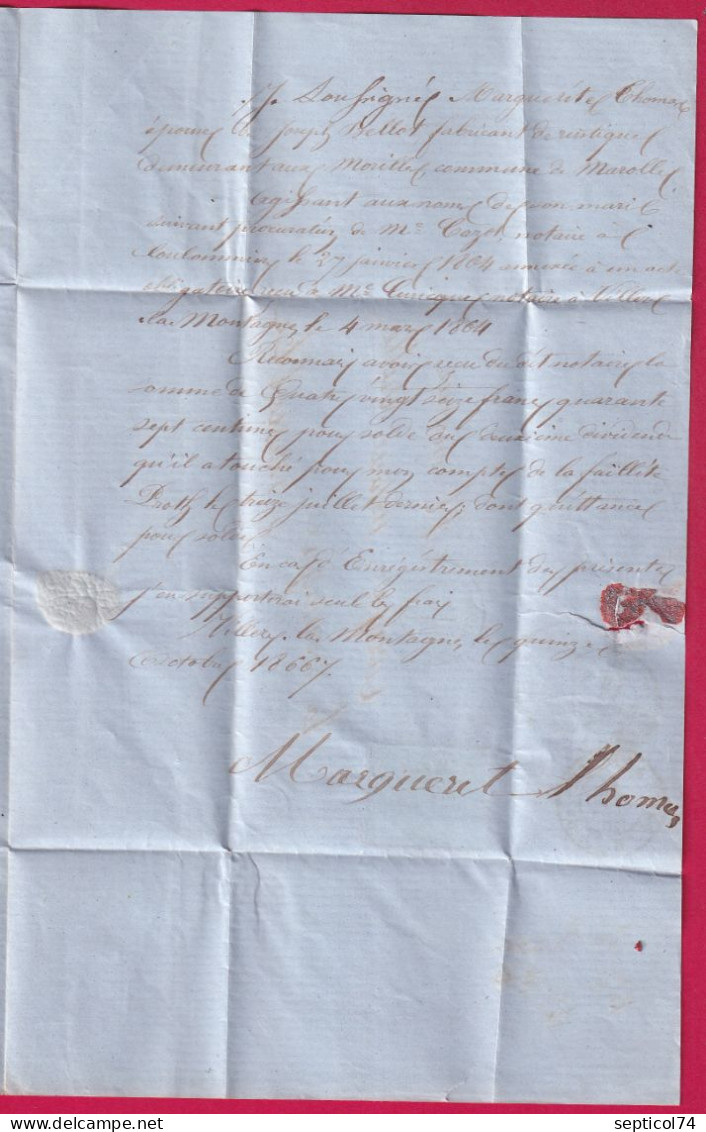 Je Soussigné Marguerite Thomas
épouse de Joseph Bellot fabricant de rustiques
demeurant aux Morilles commune de Marolles
agissant aux noms de son mari
suivant procuration de Me notaire à
Coulommiers le 27 janvier 1864 annexée à un acte
obligatoire reçu de Me notaire à Villers
la Montagne, le 4 mars 1864
Reconnais avoir reçu du dit notaire la
somme de Quatre vingt seize francs quarante
sept centimes pour solde du deuxième dividende
qu'il a touché pour mon compte de la faillite
le treize juillet dernier, dont quittance
pour solde
En cas d'Enrégistrement des présentes
j'en supporterai seul les frais
Villers la Montagne, le quinze
Octobre 18667.
Marguerit Thomas
septicol74